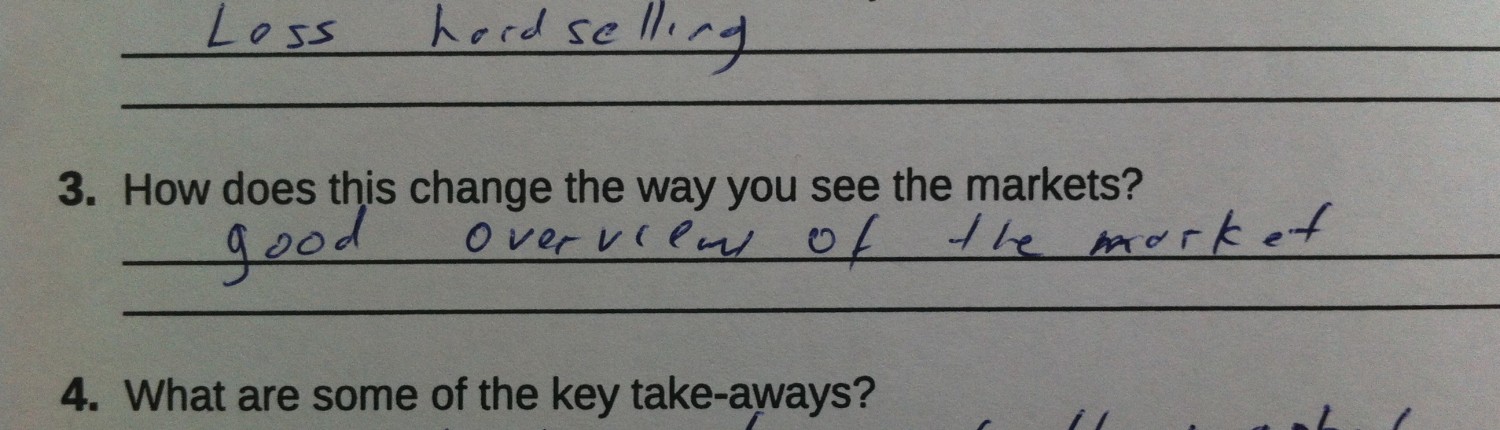 Loss hardselling
3. How does this change the way you see the markets?
good overview of the market
4. What are some of the key take-aways?